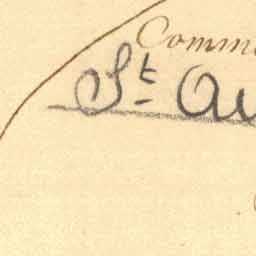 Comm
St Au